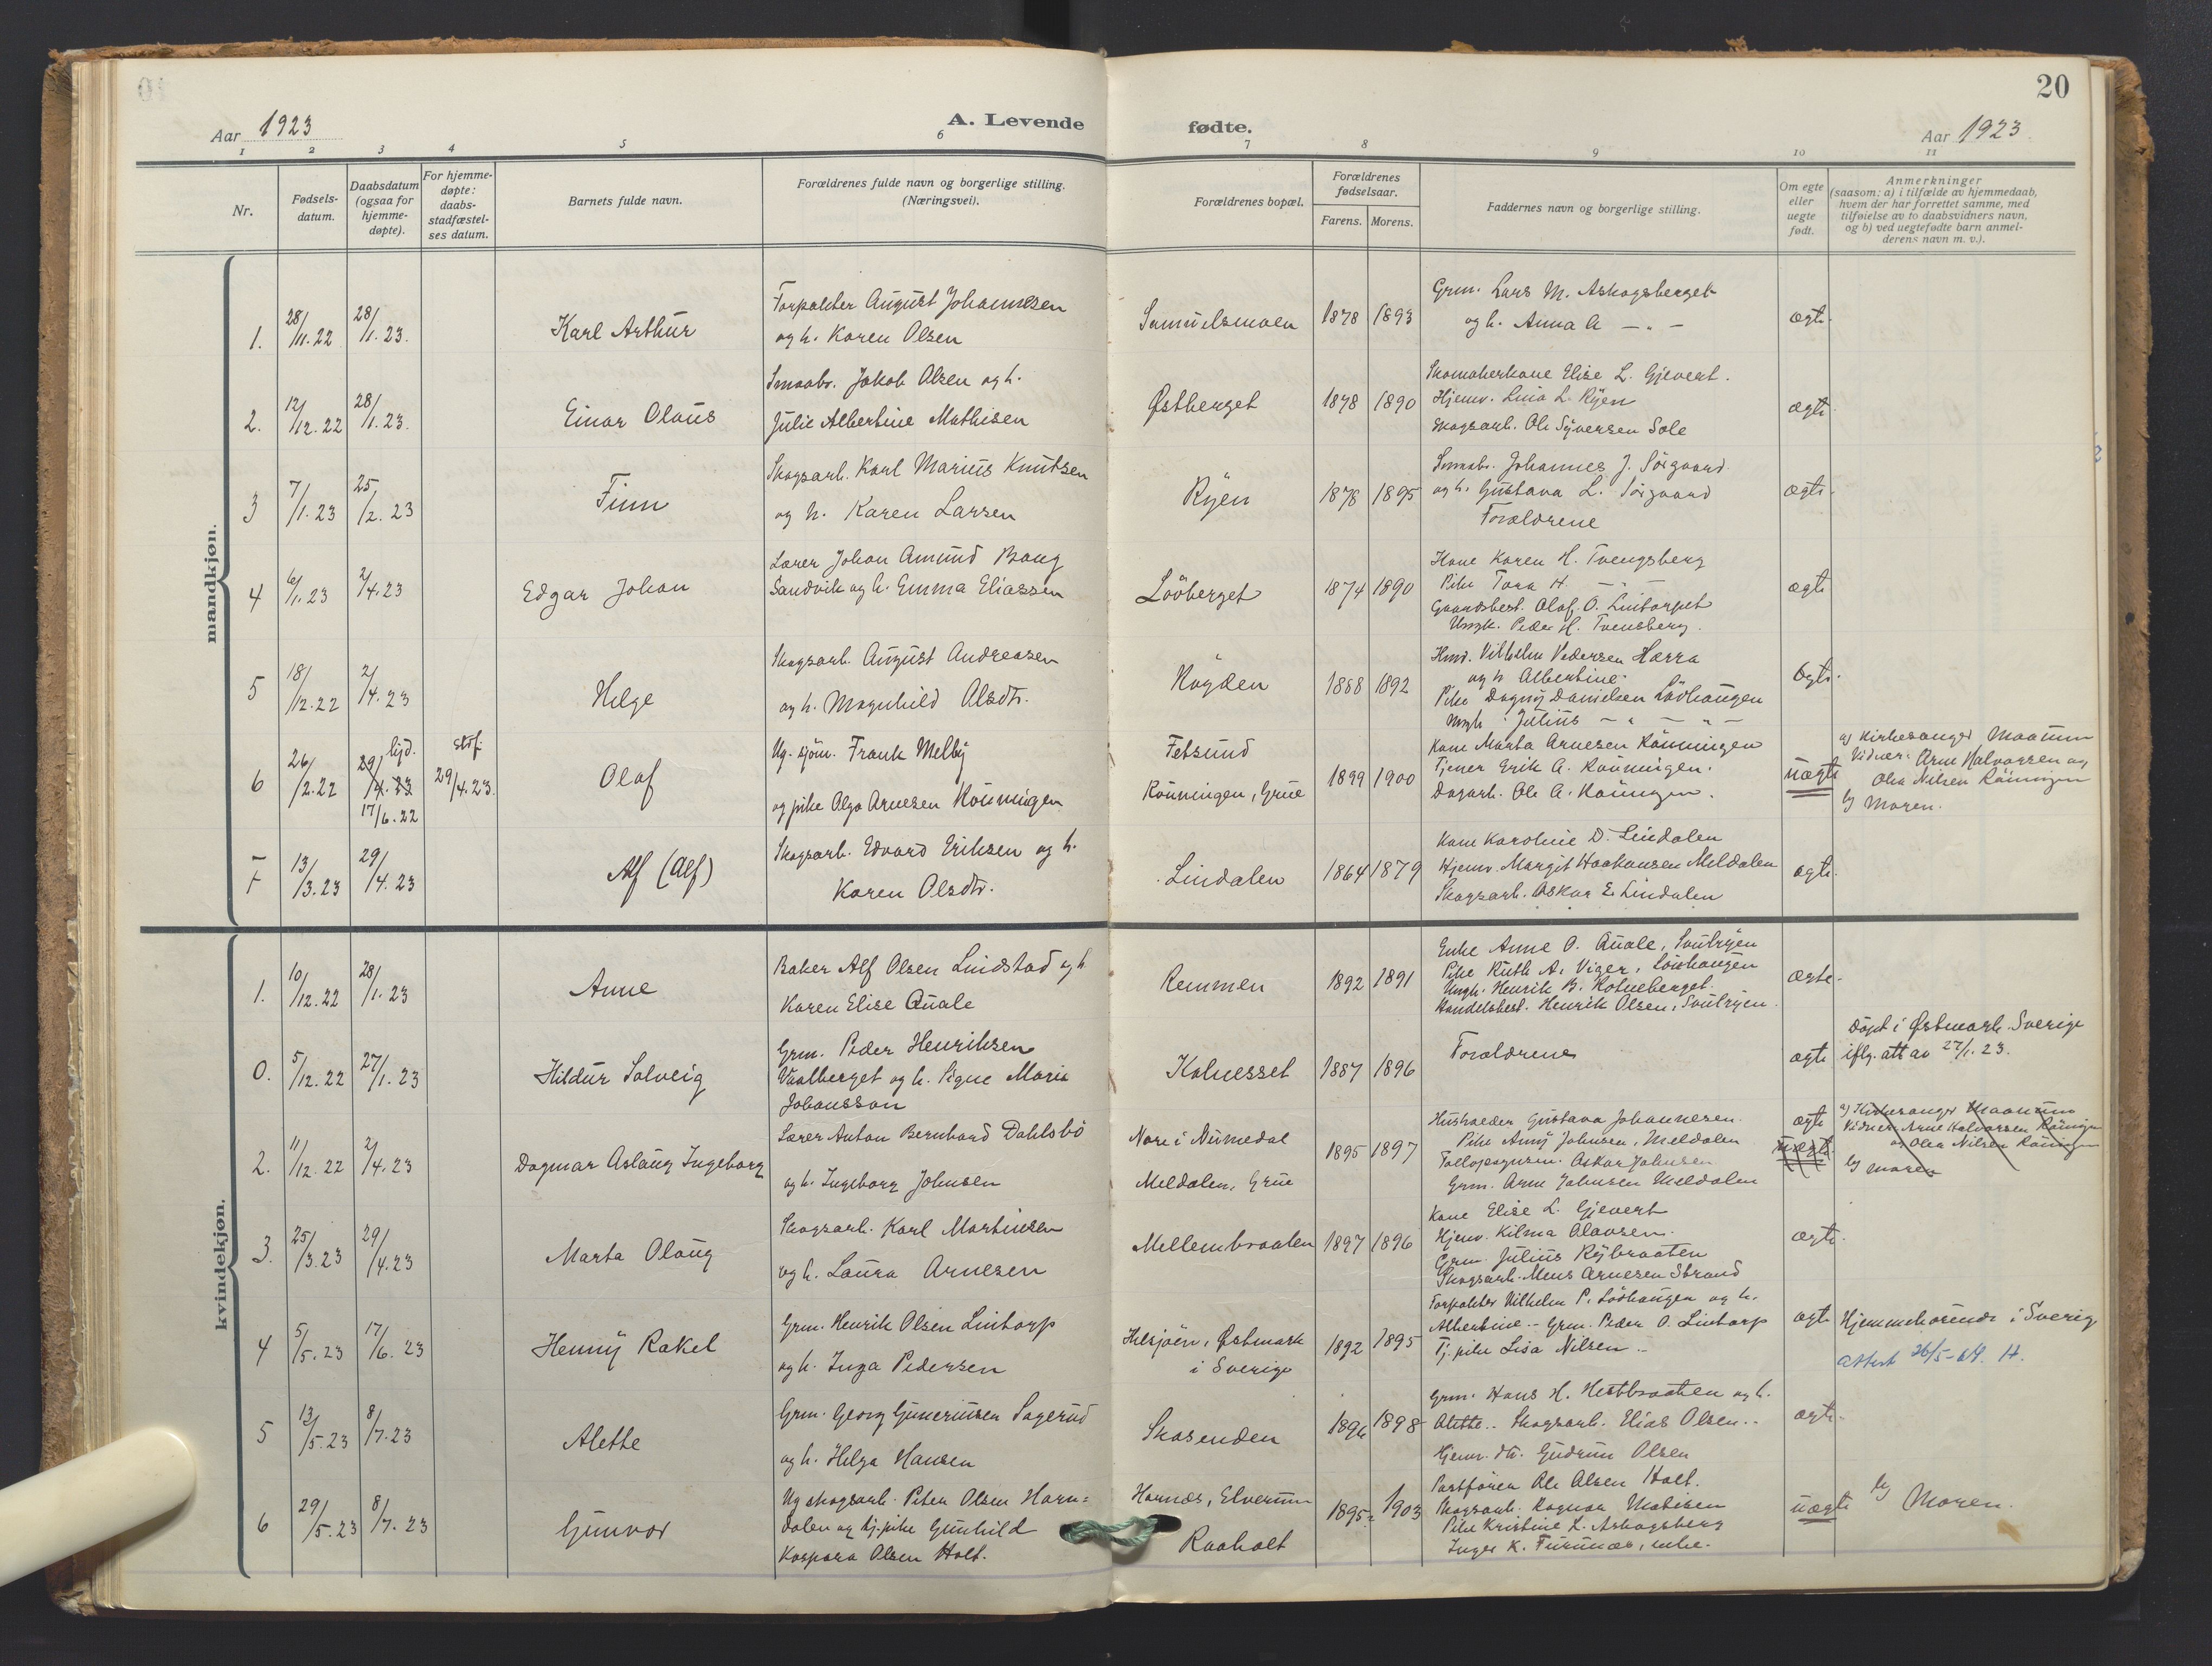 20
Aar 1923
A. Levende
fødte.
Aar 1923.
1 2 3 4 5 6 7 8 9 10 11
Nr.
Fødsels-
datum.
Daabsdatum
(ogsaa for
hjemme-
døpte).
For hjemme-
døpte:
daabs-
stadfæstel-
ses datum.
Barnets fulde navn.
Forældrenes fulde navn og borgerlige stilling.
(Næringsvei).
Forældrenes bopæl.
Forældrenes
fødselsaar.
Farens. Morens.
Faddernes navn og borgerlige stilling.
Om egte
eller
uegte
født.
Anmerkninger
(saasom: a) i tilfælde av hjemmedaab,
hvem der har forrettet samme, med
tilføielse av to daabsvidners navn,
og b) ved uegtefødte barn anmel-
derens navn m. v.).
mandkjøn.
1. 28/11.22 28/1.23. Karl Arthur
Forpakter August Johannesen
og h. Karen Olsen
Samuelsmoen 1878 1893
Grm. Lars M. Askogsberget
og h. Anna A — " —
ægte.
2. 12/12.22 28/1.23. Einar Olaus
Smaabr. Jakob Olsen og h.
Julie Albertine Mathisen
Østberget 1878 1890
Skomakerkone Elise L. Gjevert.
Hjemv. Lina L. Ryen
Skogsarb. Ole Syversen Sole
ægte
3 7/1.23 25/2.23 Finn
Skogsarb. Karl Marius Knutsen
og h. Karen Larsen
Ryen 1878 1895
Smaabr. Johannes J. Sörgaard
og h. Gustava L. Sörgaard
Forældrene
ægte.
4 6/1.23 2/4.23 Edgar Johan
Lærer Johan Amund Bang
Sandvik og h. Emma Eliassen
Lövberget 1874 1890
Kone Karen H. Tvengsberg
Pike Tora H. — " —
Gaardsbest. Olaf O. Lintorpet
Ungk. Peder H. Tvensberg.
ægte
5 18/12.22 2/4.23 Helge
Skogsarb. August Andreasen
og h. Magnhild Olsdtr.
Rögden 1868 1892
Hmd. Vilhelm Pedersen Harra
og h Albertine.
Pike Dagny Danielsen Lövhaugen
Ungk. Julius — " — " —
ægte.
6 26/2.22 hjd. 29/4.23 17/6.22 stdf. 29/4.23. Olaf
Ug. sjöm. Frank Melby
og pike Olga Arnesen Rönningen
Fetsund
Rönningen, Grue 1899 1900
Kone Marta Arnesen Rönningen
Tjener Erik A. Rönningen.
Dagarb. Ole A. Rönningen.
uægte
a) Kirkesanger Maanum
Vidner: Arne Halvorsen og
Olea Nilsen Rönningen
b) Moren.
7 13/3.23 29/4.23 Alf (Alf)
Skogsarb. Edvard Eriksen og h.
Karen Olsdtr.
Lindalen 1864 1879
Kone Karoline D. Lindalen
Hjemv. Margit Haakonsen Meldalen
Skogsarb. Oskar E. Lindalen
ægte.
kvindekjøn.
1. 10/12.22 28/1.23 Anne
Baker Alf Olsen Lindstad og h
Karen Elise Quale
Remmen 1892 1891
Enke Anne O. Quale, Svulryen
Pike Ruth A. Viger, Lövhaugen
Ungk. Henrik B. Kolneberget.
Handelsbest. Henrik Olsen, Svulryen.
ægte.
0. 5/12.22 27/1.23 Hildur Solveig
Grm. Peder Henriksen
Vaalberget og h. Signe Maria
Johansson
Kolnesset 1887 1896
Forældrene
ægte
Döpt i Østmark Sverige
iflg. att av 27/1.23.
2. 11/12.22 2/4.23 Dagmar Aslaug Ingeborg
Lærer Anton Bernhard Dahlsbö
og h. Ingeborg Johnsen
Nore i Numedal
Meldalen, Grue 1895 1897
Husholder Gustava Johannesen.
Pike Anny Johnsen, Meldalen
Tollopsynsm. Oskar Johnsen
Grm. Arne Johnsen Meldalen
ægte
uægte.
a) Kirkesanger Maanum
Vidner: Arne Halvorsen Rönningen
og Olea Nilsen Rönningen
b) moren
3. 25/3.23 29/4.23 Marta Olaug
Skogsarb. Karl Martinsen
og h. Laura Arnesen
Mellembraaten 1897 1896
Kone Elise L. Gjevert
Hjemv. Kilma Olavsen.
Grm. Julius Rybraaten
Skogsarb. Mens Arnesen Strand
ægte.
4 5/5.23 17/6.23 Henny Rakel
Grm. Henrik Olsen Lintorp
og h. Inga Pedersen
Helsjöen, Østmark
i Sverige 1892 1895
Forpakter Vilhelm P. Lövhaugen og h.
Albertine.- Grm. Peder O. Lintorp
Tj. pike Lisa Nilsen..
ægte
Hjemmehörende i Sverige
Attest 26/5-64. H.
5 13/5.23 8/7.23 Alette
Grm. Georg Guneriusen Sagerud
og h. Helga Hansen
Skasenden 1896 1898
Grm. Hans H. Hestbraaten og h.
Alette.. Skogsarb. Elias Olsen..
Hjemv. dtr. Gudrun Olsen
ægte.
6 29/5.23 8/7.23 Gunvor
Ug skogsarb. Peter Olsen Horn=
dalen og tj. pike Gunhild
Kaspara Olsen Holt.
Hornæs, Elverum
Raaholt 1895. 1903
Postförer Ole Olsen Holt.
Skogsarb. Ragnar Mobisen
Pike Kristine L. Askogsberg
Inger K. Furunæs, enke.
uægte
b) Moren.